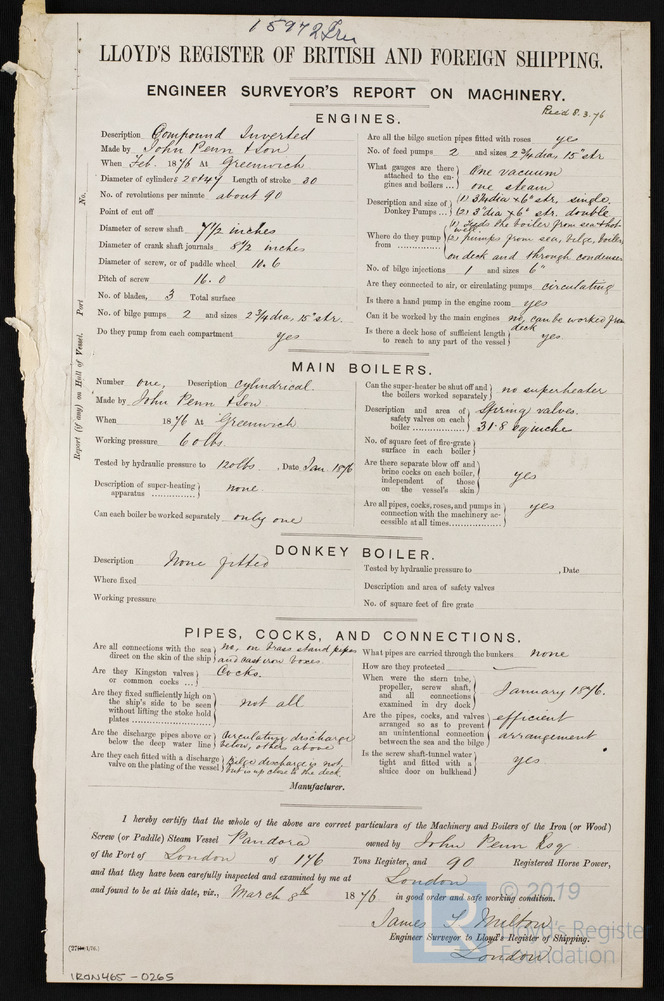 15972 Irn
LLOYD'S REGISTER OF BRITISH AND FOREIGN SHIPPING.
ENGINEER SURVEYOR'S REPORT ON MACHINERY.
Recd 8.3.76
ENGINES.
No.
Port
Report (if any) on Hull of Vessel.
Description Compound Inverted
Made by John Penn & Son
When Feb. 1876 At Greenwich
Diameter of cylinders 28 & 47 Length of stroke 30
No. of revolutions per minute about 90
Point of cut off
Diameter of screw shaft 7 1/2 inches
Diameter of crank shaft journals 8 1/2 inches
Diameter of screw, or of paddle wheel 10.6
Pitch of screw 16.0
No. of blades, 3 Total surface
No. of bilge pumps 2 and sizes 2 3/4 dia, 15" str.
Do they pump from each compartment yes
Are all the bilge suction pipes fitted with roses yes
No. of feed pumps 2 and sizes 2 3/4 dia, 15" str
What gauges are there attached to the engines and boilers ... One vacuum
one steam
Description and size of Donkey Pumps ... (1) 3 3/4 dia x 6" str, single.
(2) 3" dia x 6" str. double
Where do they pump from ............ (1) Feeds the boiler from sea & hot-well
(2) pumps from sea, bilge, boiler,
on deck and through condenser
No. of bilge injections 1 and sizes 6"
Are they connected to air, or circulating pumps circulating
Is there a hand pump in the engine room yes
Can it be worked by the main engines no, can be worked from deck
Is there a deck hose of sufficient length to reach to any part of the vessel yes
MAIN BOILERS.
Number one, Description cylindrical.
Made by John Penn & Son
When 1876 At Greenwich
Working pressure 60 lbs.
Tested by hydraulic pressure to 120 lbs. , Date Jan. 1876
Description of super-heating apparatus ............... none.
Can each boiler be worked separately only one
Can the super-heater be shut off and the boilers worked separately no superheater
Description and area of safety valves on each boiler ............... Spring valves.
31.8 sq inche
No. of square feet of fire-grate surface in each boiler
Are there separate blow off and brine cocks on each boiler, independent of those on the vessel's skin yes
Are all pipes, cocks, roses, and pumps in connection with the machinery accessible at all times............... yes
DONKEY BOILER.
Description None fitted
Where fixed
Working pressure
Tested by hydraulic pressure to , Date
Description and area of safety valves
No. of square feet of fire grate
PIPES, COCKS, AND CONNECTIONS.
Are all connections with the sea direct on the skin of the ship no, on brass stand pipes
and cast iron boxes.
Are they Kingston valves or common cocks ... Cocks.
Are they fixed sufficiently high on the ship's side to be seen without lifting the stoke hold plates ............... not all
Are the discharge pipes above or below the deep water line Circulating discharge
below, others above
Are they each fitted with a discharge valve on the plating of the vessel Bilge discharge is not
but is up close to the deck.
What pipes are carried through the bunkers none
How are they protected
When were the stern tube, propeller, screw shaft, and all connections examined in dry dock January 1876.
Are the pipes, cocks, and valves arranged so as to prevent an unintentional connection between the sea and the bilge efficient
arrangement
Is the screw shaft-tunnel water tight and fitted with a sluice door on bulkhead yes.
Manufacturer.
I hereby certify that the whole of the above are correct particulars of the Machinery and Boilers of the Iron (or Wood)
Screw (or Paddle) Steam Vessel Pandora owned by John Penn Esq
of the Port of London of 176 Tons Register, and 90 Registered Horse Power,
and that they have been carefully inspected and examined by me at London
and found to be at this date, viz., March 8th 1876 in good order and safe working condition.
James T. Milton
Engineer Surveyor to Lloyd's Register of Shipping.
London
© 2019
Lloyd's Register
Foundation
IRON465-0265